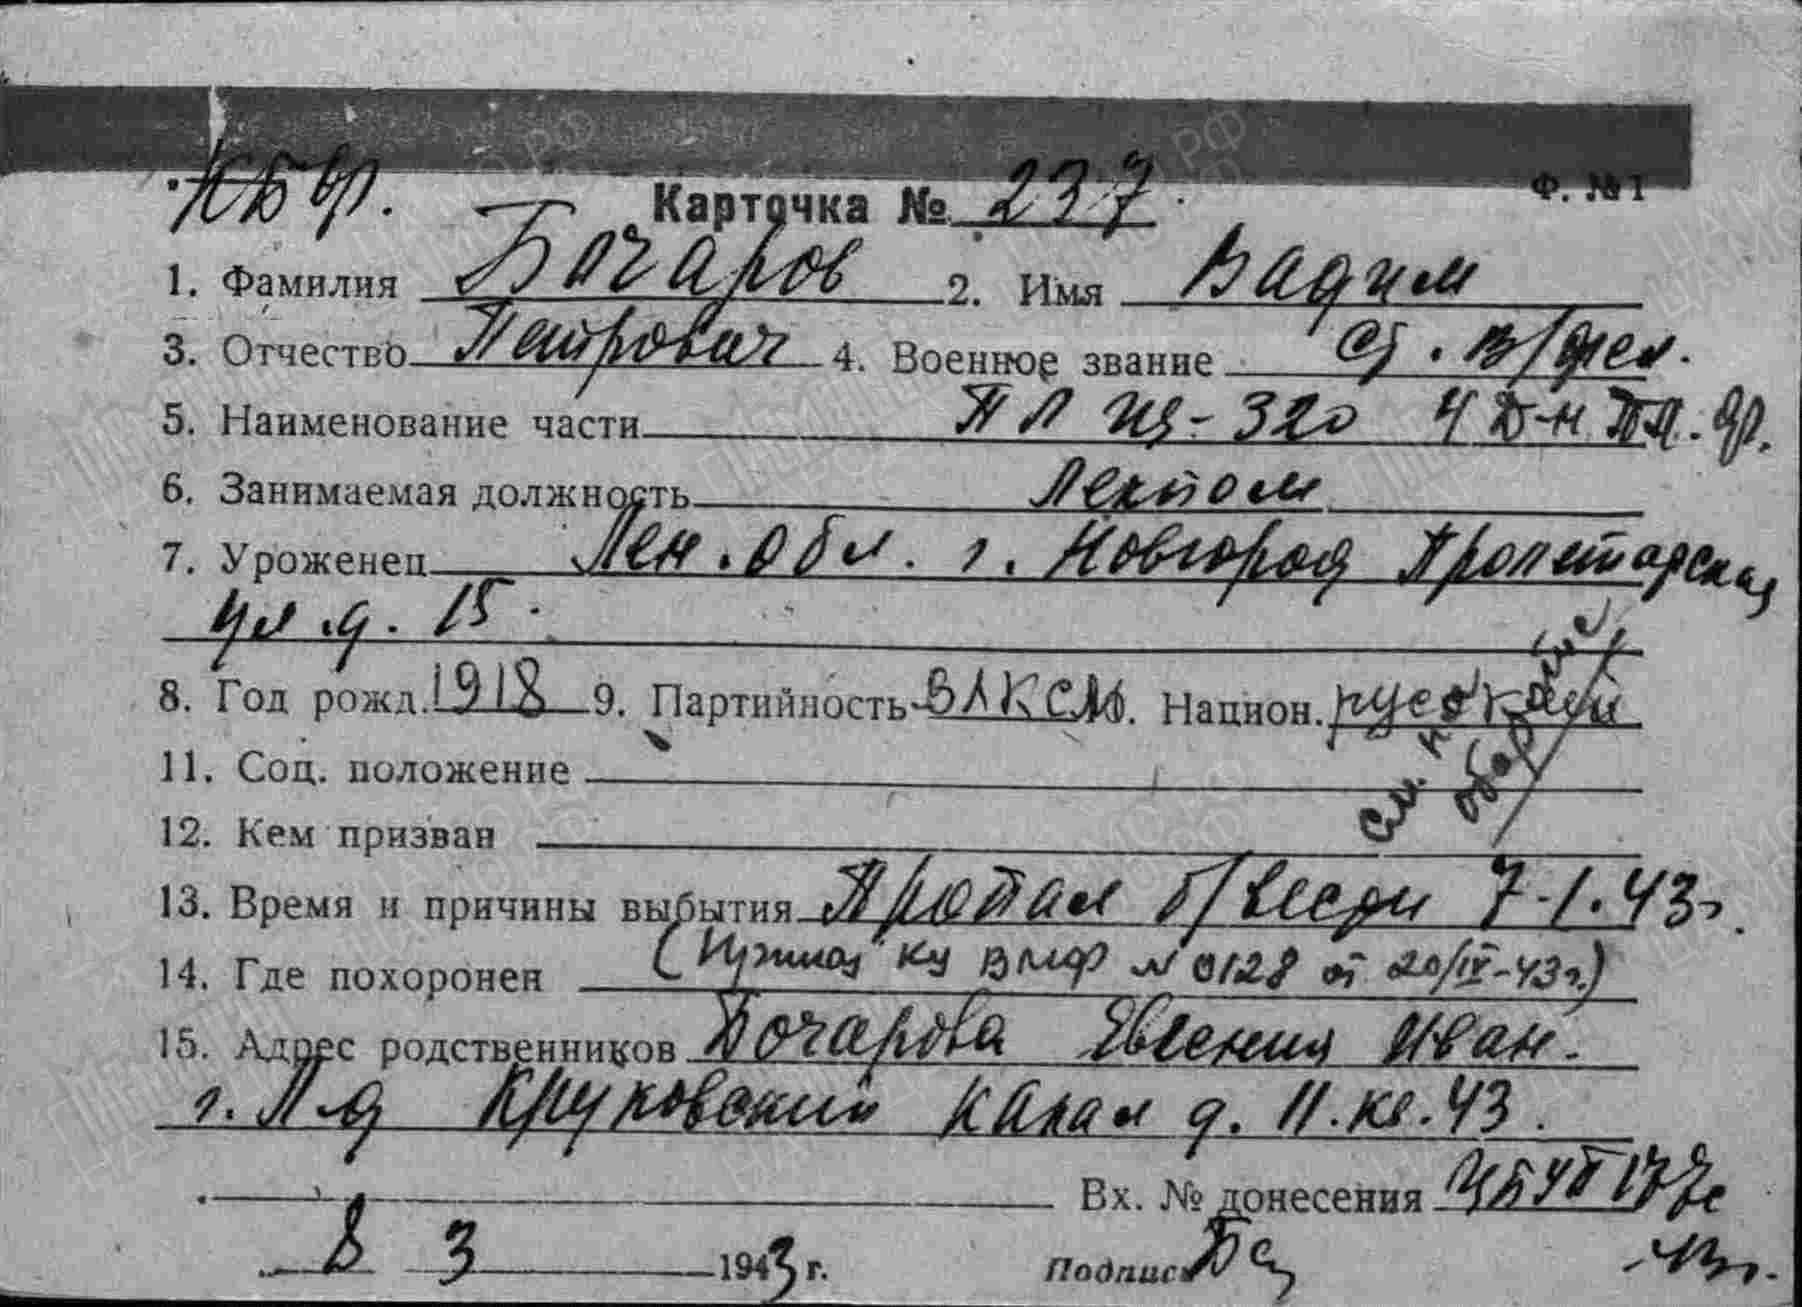 КБФ.
Карточка № 237
Ф. №1
1. Фамилия Бочаров 2. Имя Вадим
3. Отчество Петрович 4. Военное звание ст. в/фел.
5. Наименование части ПЛ Щ-320 4 Д-н ПЛ.
6. Занимаемая должность Лекпом
7. Уроженец Лен. обл. г. Новгород Пролетарская
ул. д. 15.
8. Год рожд. 1918 9. Партийность ВЛКСМ. Национ. русский
См. на обороте
11. Соц. положение
12. Кем призван
13. Время и причины выбытия Пропал б/вести 7-1.43г.
14. Где похоронен (Приказ ВМФ № 0128 от 20/IV-43г.)
15. Адрес родственников Бочарова Евгения Иван.
г. Л-д Круковский канал д. 11. кв. 43.
Вх. № донесения
8 3 1943 г. Подпись